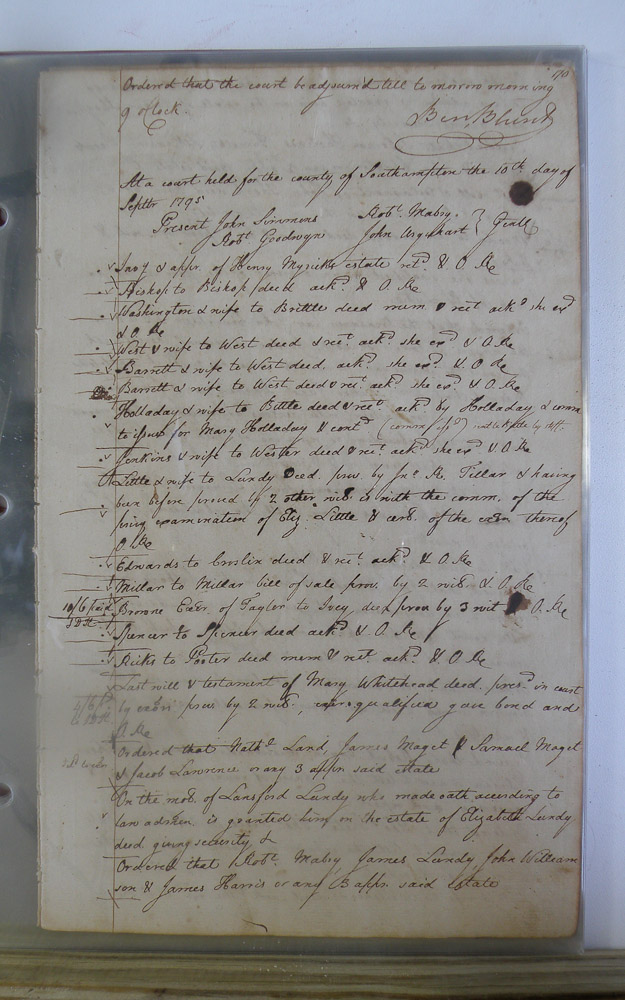 Ordered that the court be adjournd till to morrow morning
9 oClock.
Ben. Blunt
At a court held for the county of Southampton the 10th day of
Septbr 1795
Present John Simmons Robt. Mabry,
Robt Goodwyn John Urquhart Gentl
Invy & appr. of Henry Myricks estate ret. & O. Re
Bishop to Bishop deed ackd. & O Re
Washington & wife to Brittle deed mem & rect ackd she exd
& O. Re
West & wife to West deed & rect. ackd. she exd & O. Re
Barrett & wife to West deed. ackd. she exd. & O Re
Barrett & wife to West deed & rect. ackd. she exd. & O. Re
Holladay & wife to Bittle deed & rect. ackd by Holladay & comm
to issue for Mary Holladay & contd
Jenkins & wife to Wester deed & rect ackd she exd & O. Re
Little & wife to Lundy Deed. prov. by Jno. R. Tillar & having
been before proved by 2 other wits. is with the comm. of the
privy examination of Eliz. Little & cert. of the exn thereof
O. Re
Edwards to deed & rect. ackd. & O. Re
Millar to Millar bill of sale prov. by 2 wits & O. Re
10/6 paid Browne Exor. of Taylor to Ivey deed prov by 3 wit O. Re
Spencer to Spencer deed ackd & O. Re
Ricks to Porter deed mem & rect. ackd. & O. Re
Last will & testament of Mary Whitehead deced. presd. in court
by exors prov. by 2 wits., exor qualified gave bond and
O Re
Ordered that Nathl. Land, James Maget, Samuel Maget
& Jacob Lawrence or any 3 appr. said estate
On the mot. of Lansford Lundy who made oath according to
law admon. is granted him on the estate of Elizabeth Lundy
deed. giving security &
Ordered that Robt. Mabry James Lundy John William
son & James Harris or any 3 appr. said estate